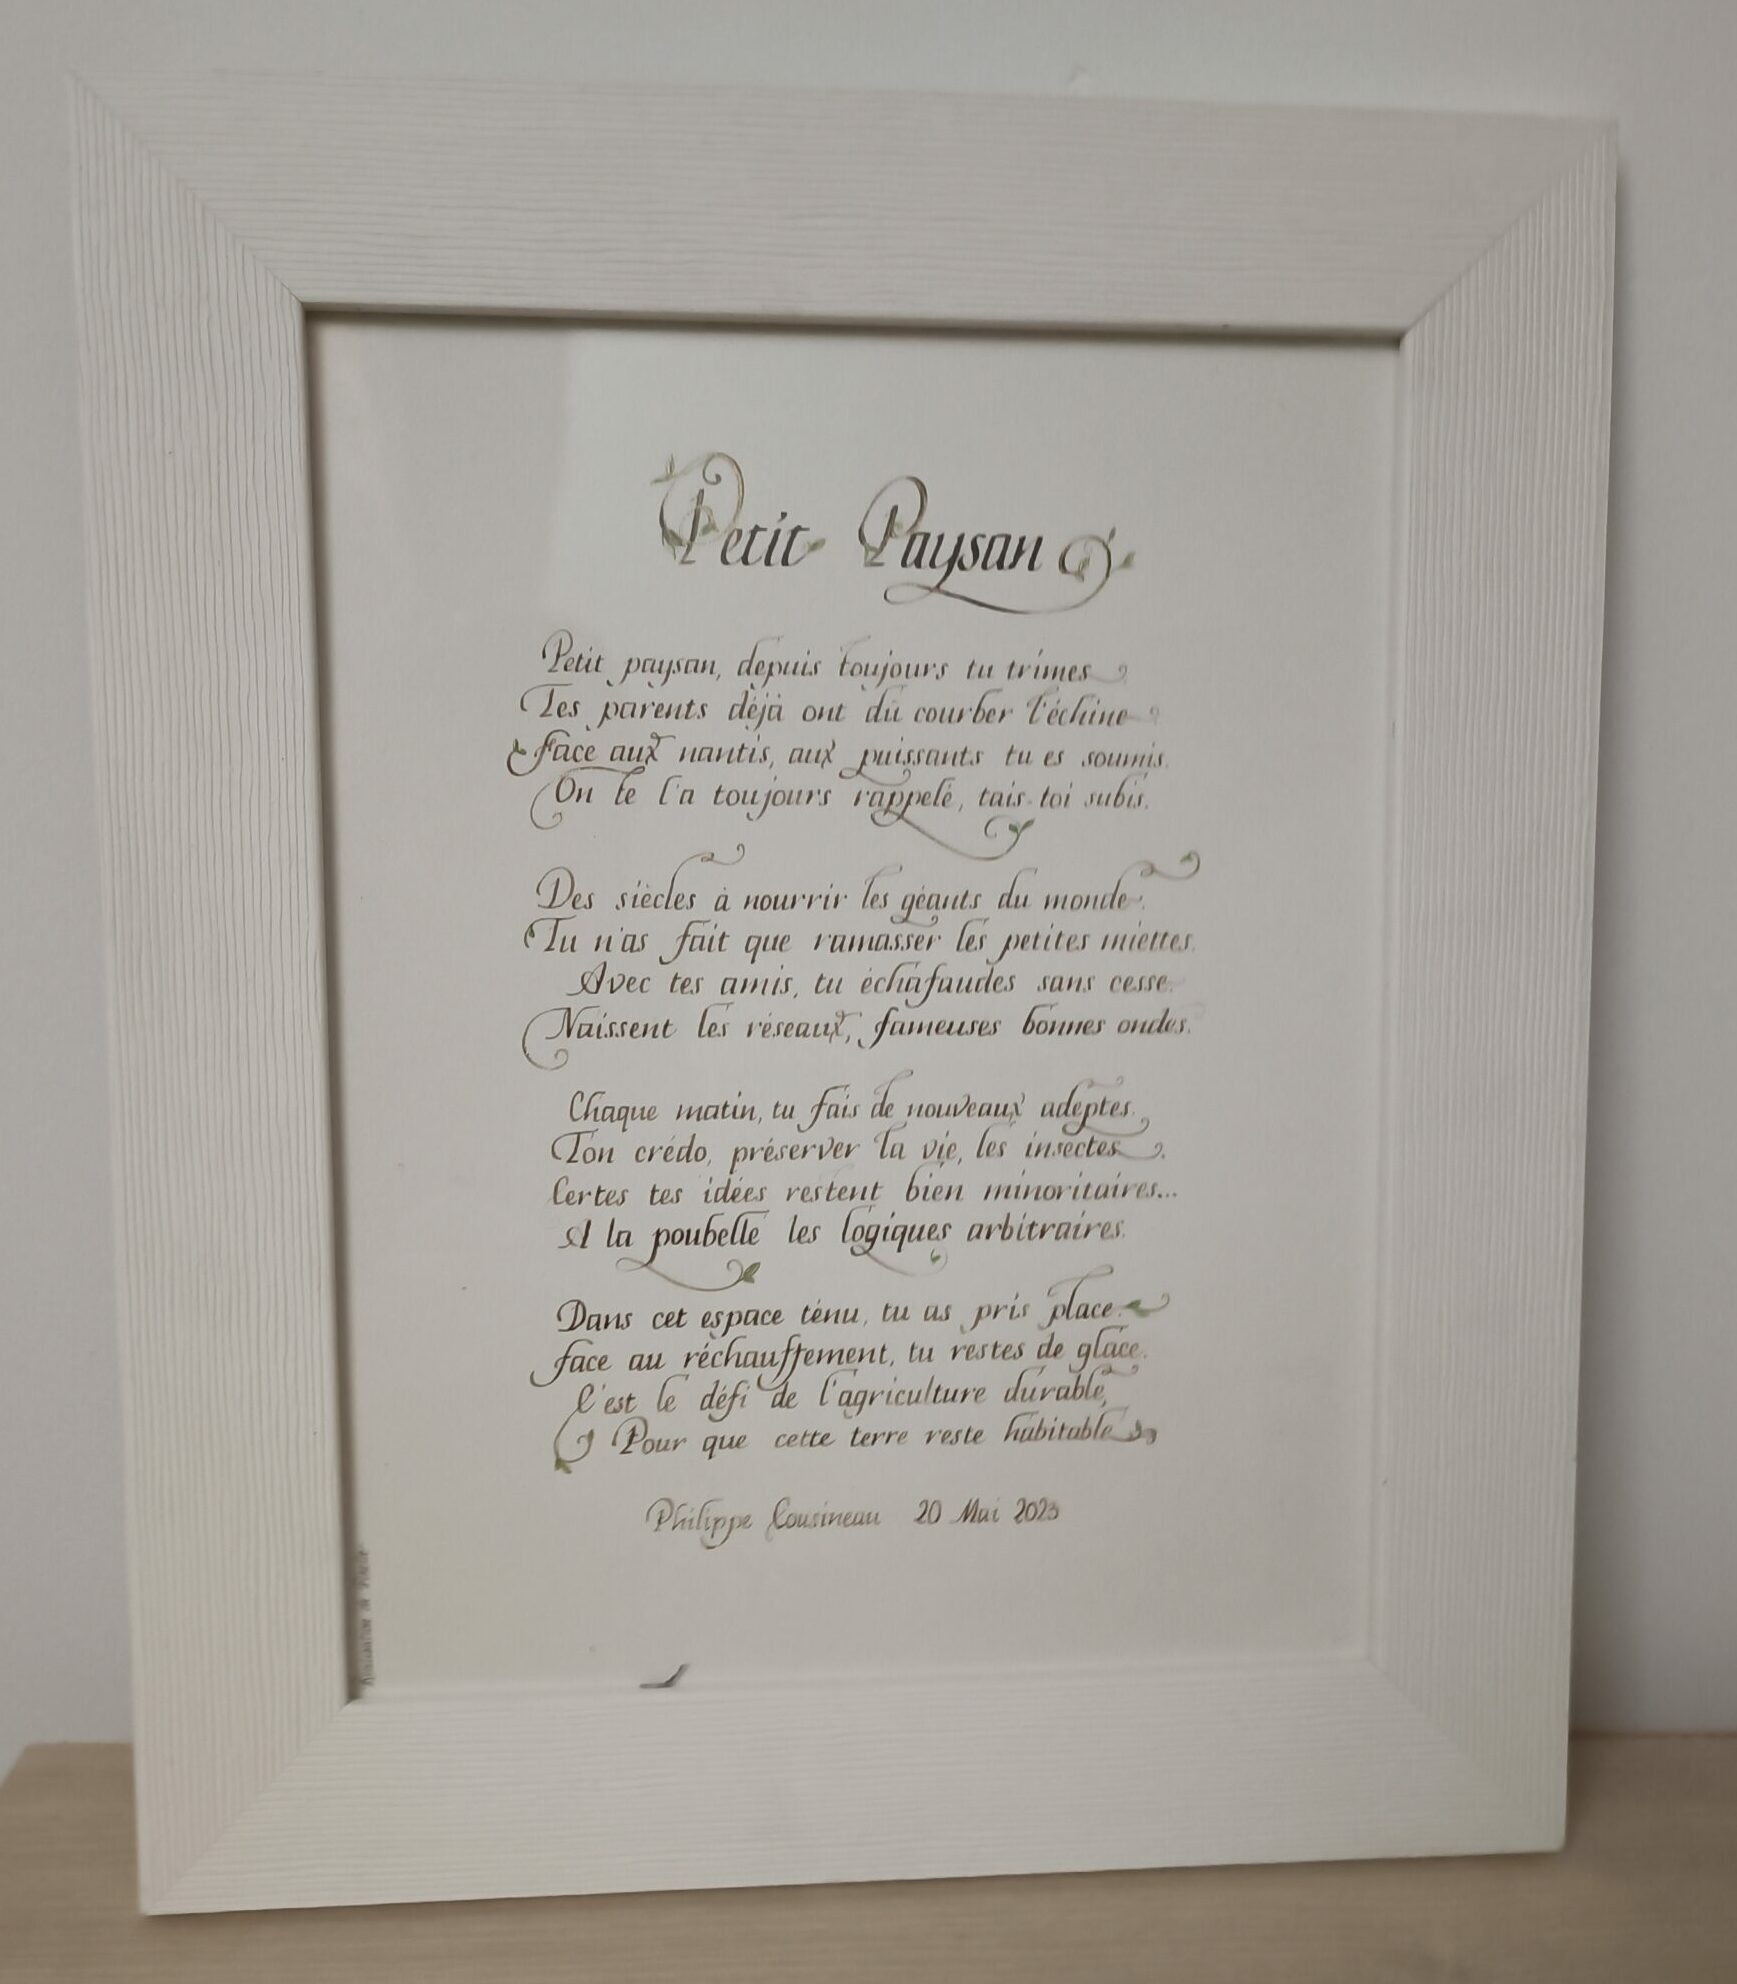 Petit Paysan
Petit paysan, depuis toujours tu trimes
Tes parents déjà ont dû courber l'échine
Face aux nantis, aux puissants tu es soumis.
On te l'a toujours rappelé, tais-toi subis.
Des siècles à nourrir les géants du monde.
Tu n'as fait que ramasser les petites miettes.
Avec tes amis, tu échafaudes sans cesse.
Naissent les réseaux, fameuses bonnes ondes.
Chaque matin, tu fais de nouveaux adeptes.
Ton crédo, préserver la vie, les insectes.
Certes tes idées restent bien minoritaires...
A la poubelle les logiques arbitraires.
Dans cet espace ténu, tu as pris place.
face au réchauffement, tu restes de glace.
C'est le défi de l'agriculture durable,
Pour que cette terre reste habitable
Philippe Cousineau 20 Mai 2023